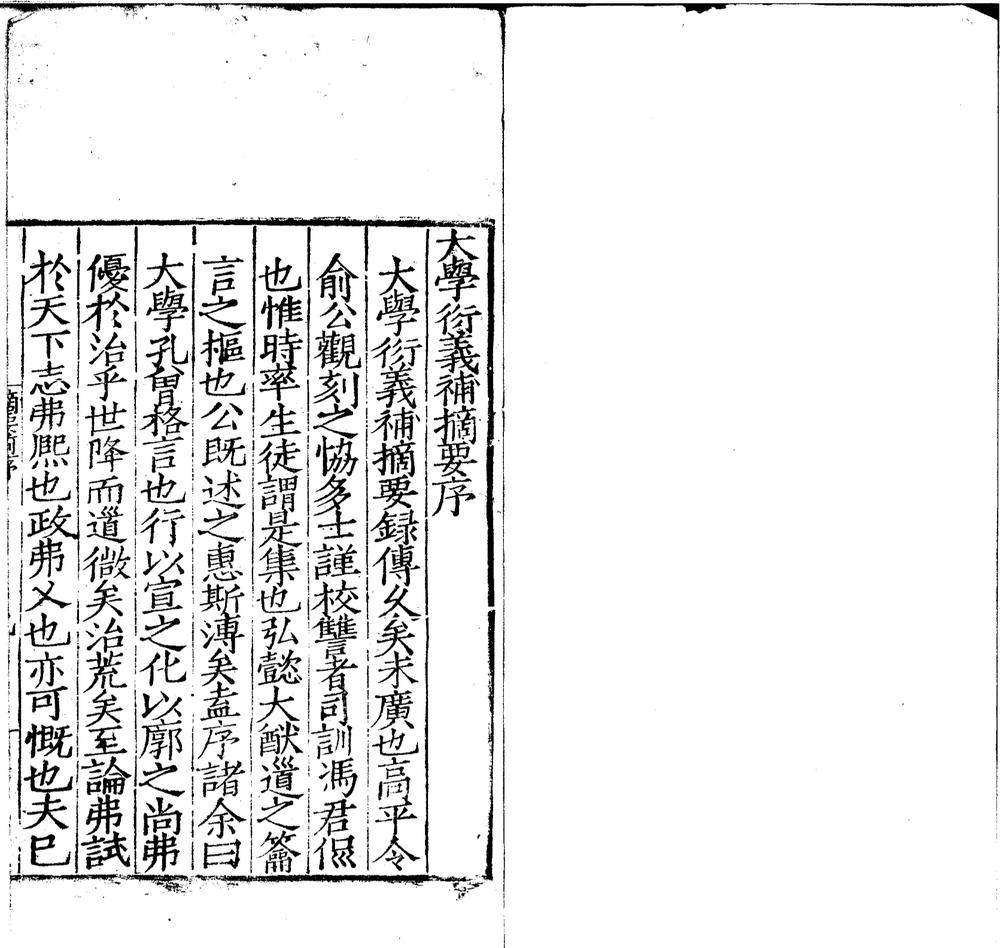 大學衍義補摘要序
大學衍義補摘要録傳久矣未廣也高平令
俞公觀刻之恊多士謹校讐者司訓馮君侃
也惟時率生徒謂是集也弘懿大猷道之籥
言之樞也公既述之惠斯溥矣盍序諸余曰
大學孔曾格言也行以宣之化以廓之尚弗
優於治乎世降而道微矣治荒矣至論弗試
於天下志弗熈也政弗乂也亦可慨也夫已